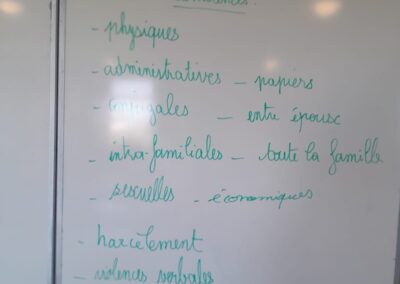 violences :
- physiques
- administratives - papiers
- conjugales - entre époux
- intra-familiales - toute la famille
- sexuelles - économiques
- harcèlement
- violences verbales